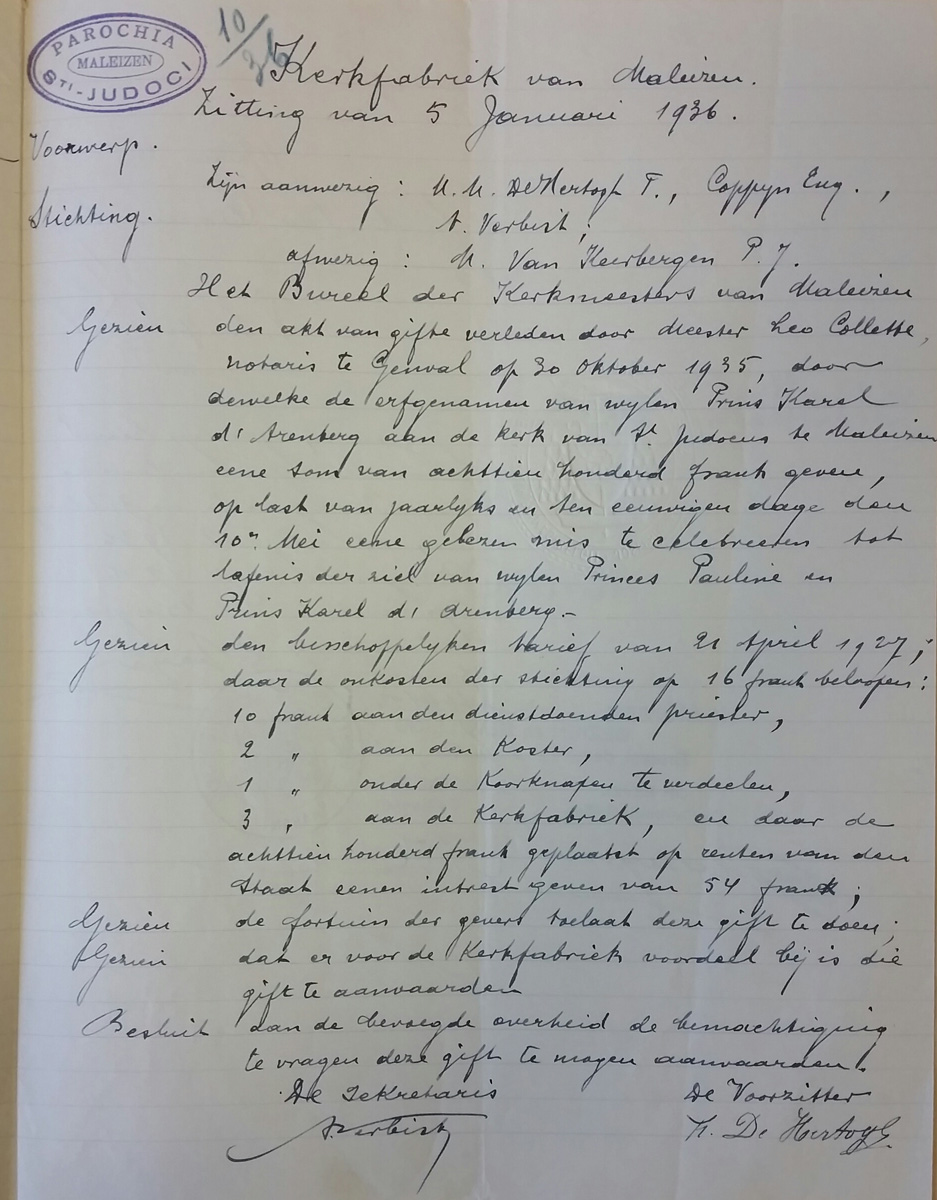 PAROCHIA
MALEIZEN
STI-JUDOCI
10/36
Kerkfabriek van Maleizen.
Zitting van 5 Januari 1936.
Voorwerp.
Zijn aanwezig : M. M. De Hertogh F., Coppyn Eug. ,
Stichting.
A. Verbist ;
afwezig : M. Van Keerbergen P. J.
Het Bureel der Kerkmeesters van Maleizen
Gezien den akt van gifte verleden door Meester Leo Collette,
notaris te Genval op 30 Oktober 1935, door
dewelke de erfgenamen van wylen Prins Karel
d'Arenberg aan de kerk van St Judocus te Maleizen
eene som van achttien honderd frank geven,
op last van jaarlyks en ten eeuwigen dage den
10n Mei eene gelezen mis te celebreeren tot
lafenis der ziel van wylen Princes Pauline en
Prins Karel d'Arenberg.-
Gezien den bisschoppelyken tarief van 21 April 1927 ;
daar de onkosten der stichting op 16 frank beloopen :
10 frank aan den dienstdoenden priester,
2 " aan den Koster,
1 " onder de Koorknapen te verdeelen,
3 " aan de Kerkfabriek, en daar de
achttien honderd frank geplaatst op renten van den
Staat eenen intrest geven van 54 frank ;
Gezien de fortuin der gevers toelaat deze gift te doen ;
Gezien dat er voor de Kerkfabriek voordeel bij is die
gift te aanvaarden
Besluit aan de bevoegde overheid de bemachtiging
te vragen deze gift te mogen aanvaarden.
De Sekretaris De Voorzitter
A. Verbist De Hertogh